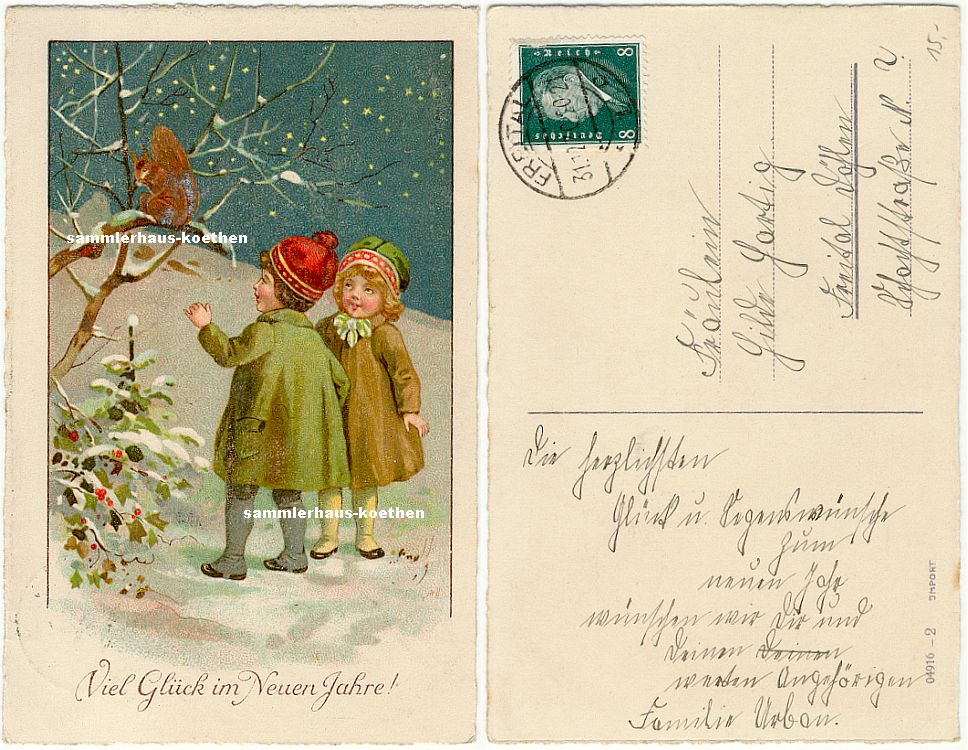 sammlerhaus-koethen
sammlerhaus-koethen
Viel Glück im Neuen Jahre!
Deutsches
Reich
8
8
FREITAL
31.12.
15,-
Fräulein
Hilde Hartig
Freital Döhlen
N. 2
Die herzlichsten
Glück u. Segenswünsche
zum
neuen Jahr
wünschen wir Dir und
Deinen Deinen
werten Angehörigen
Familie Urban.
04916 - 2
IMPORT